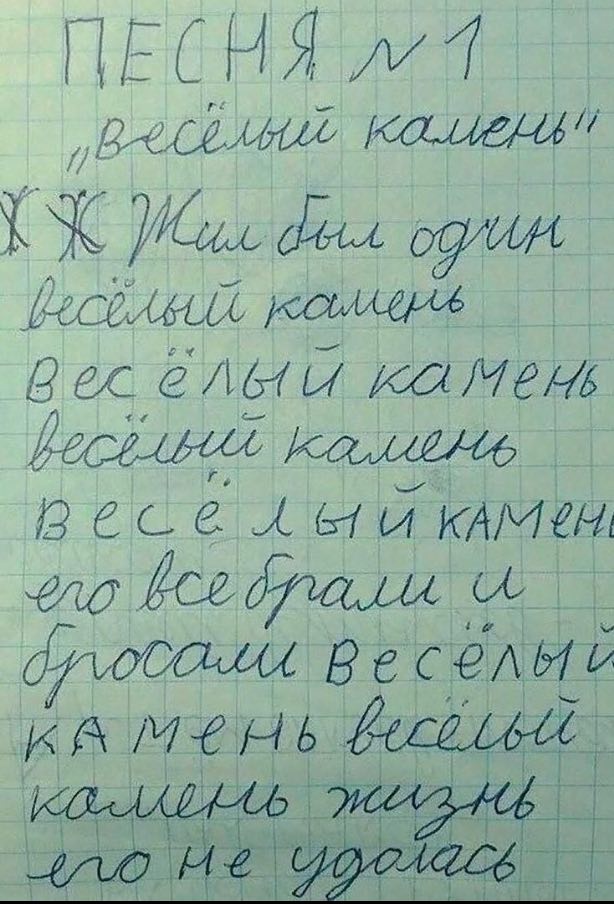 ПЕСНЯ N 1
„весёлый камень"
Ж Ж Жил был один
весёлый камень
весёлый камень
весёлый камень
весёлый камень
его все брали и
бросали весёлый
камень весёлый
камень жизнь
его не удолась